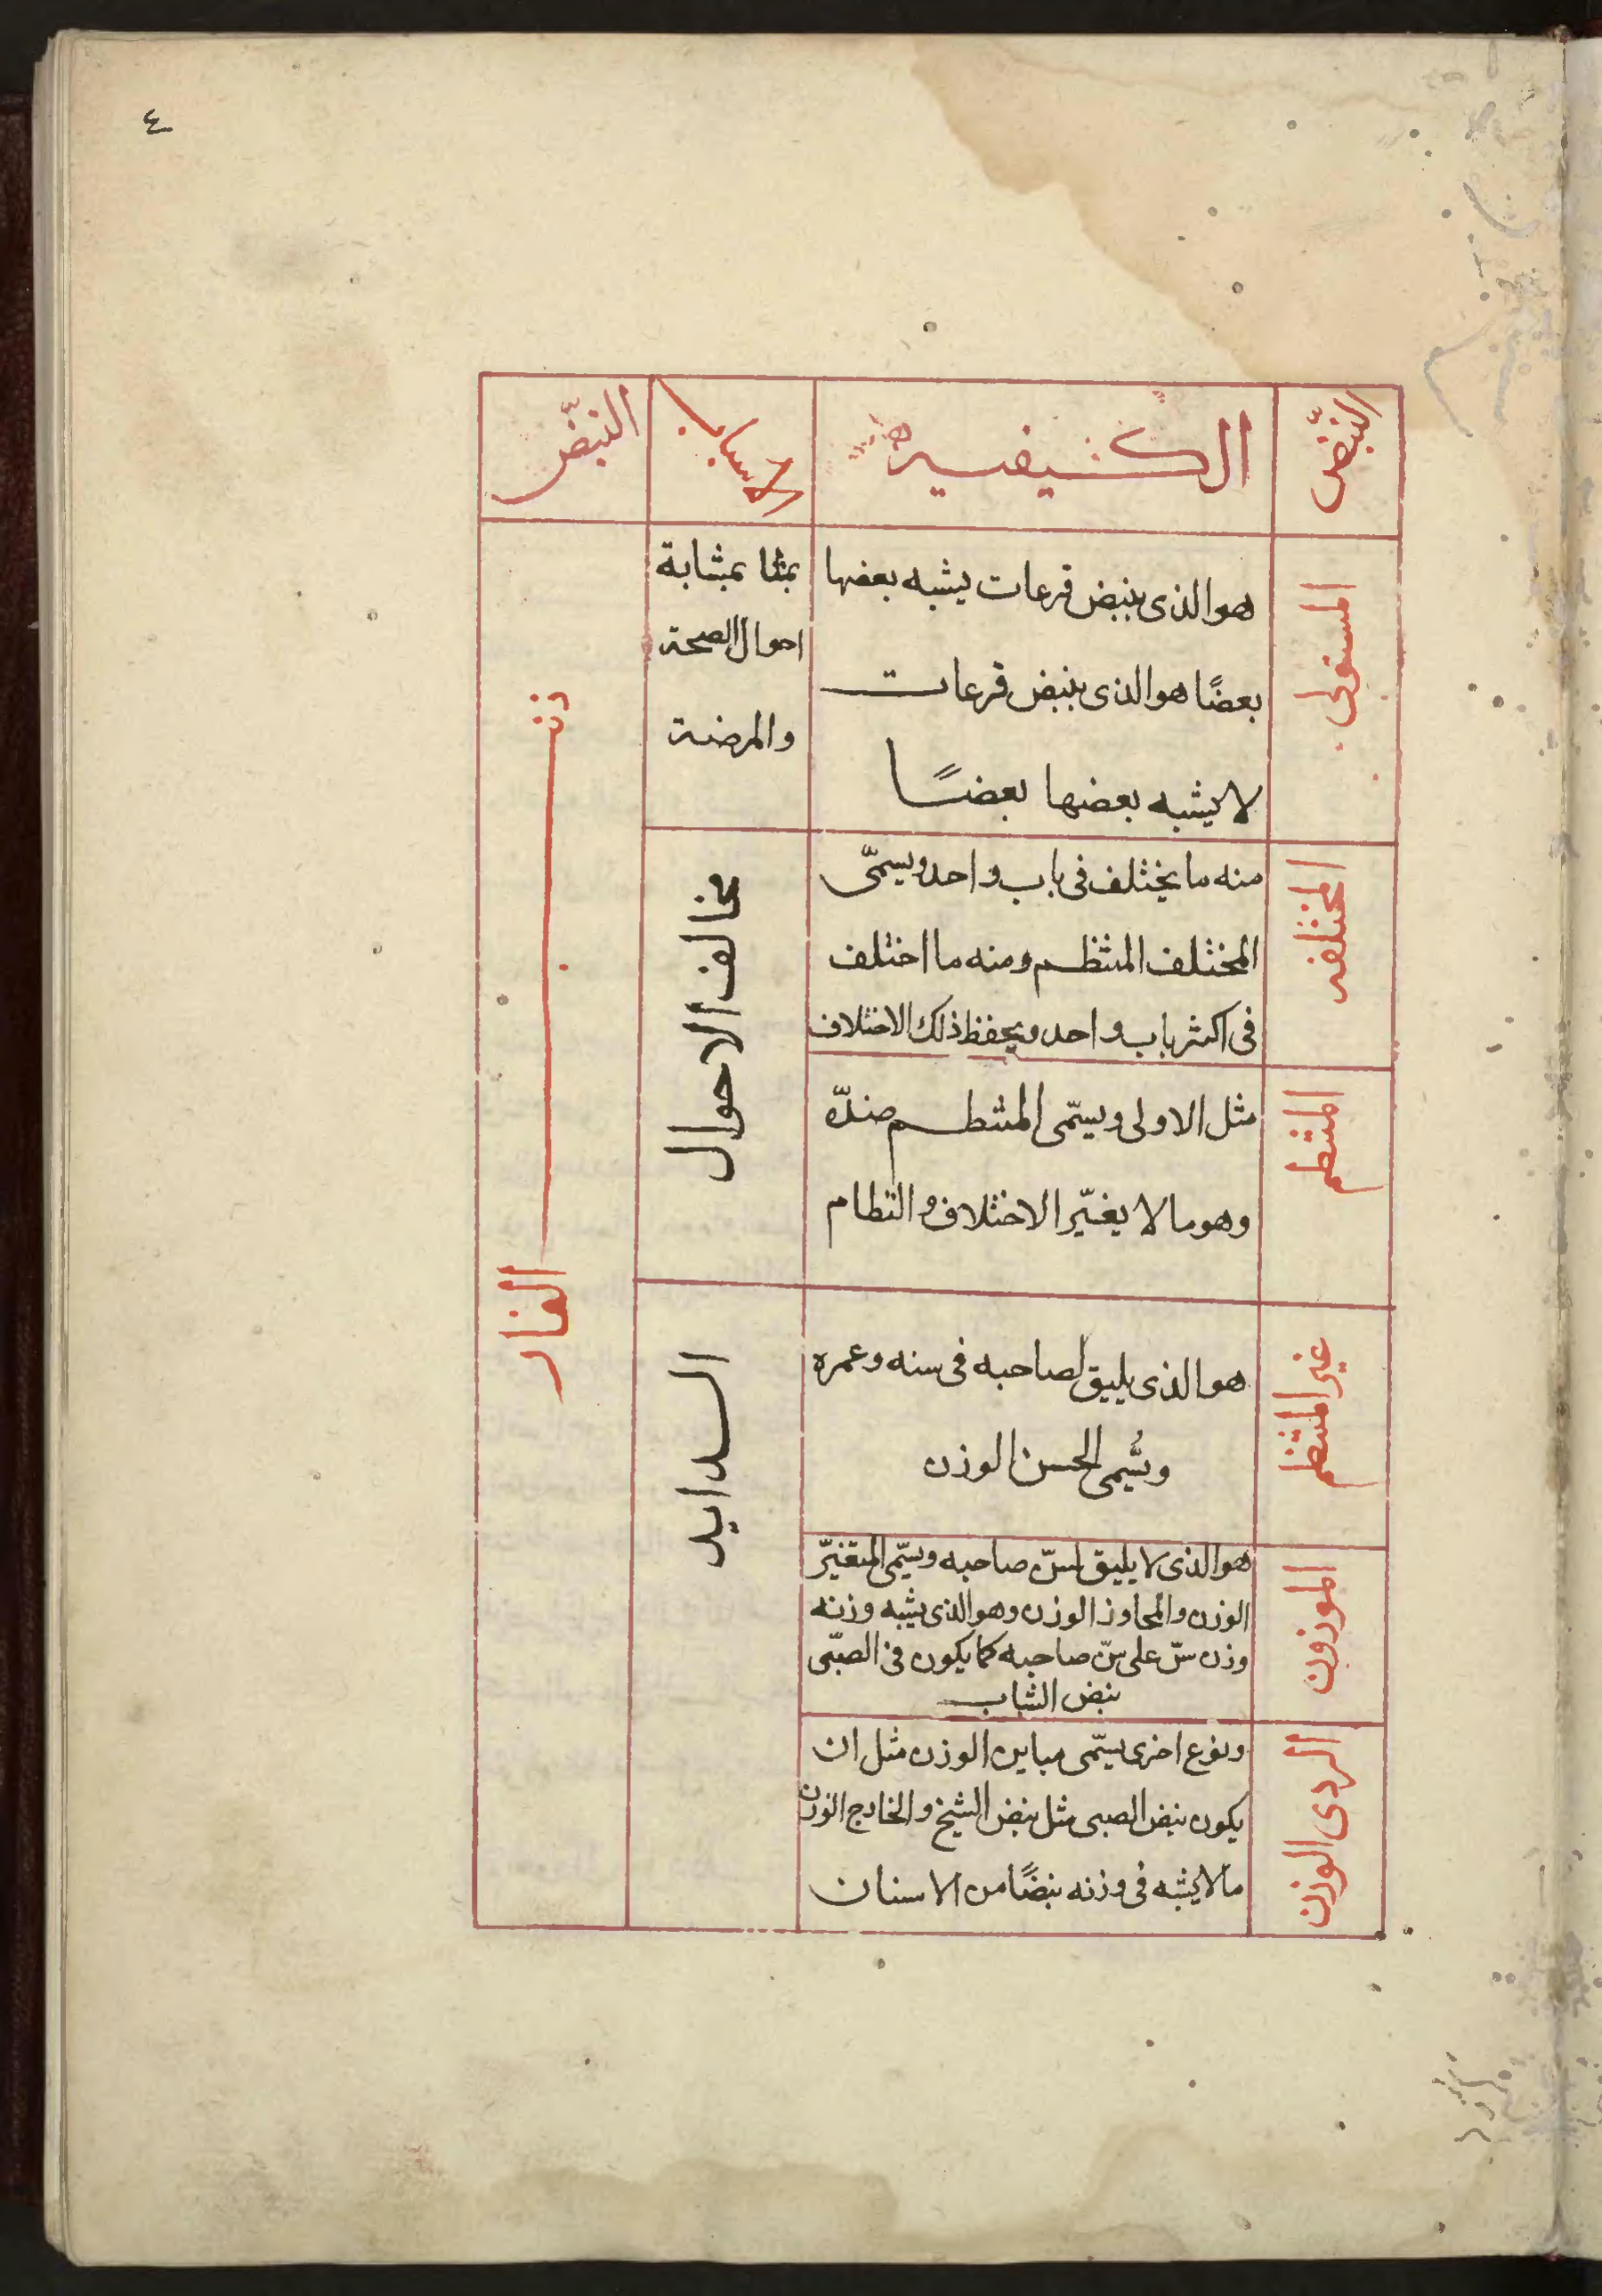 ٤
النبّض
الكيفيه
الاسباب
النبّض
المستولى
هوالذى ينبض قرعات يشبه بعضها
بعضًا هوالذى ينبض قرعات
لا يشبه بعضها بعضًا
بمثابة
احوال الصحة
والمرضة
المختلفه
منه ما يختلف فى باب واحد ويسمّى
المختلف المنتظم ومنه ما اختلف
فى اكثر باب واحد ويحفظ ذلك الاختلاف
المنتظم
مثل الاولى ويسمّى المنتظم ضدّه
وهو ما لا يغيّر الاختلاف والنظام
مخالف الاحوال
غير المنتظم
هوالذى يليق لصاحبه فى سنه وعمره
ويُسّمى الحسن الوزن
الموزون
هوالذى لا يليق لسنّ صاحبه ويسّمى المتغيّر
الوزن والمجاوز الوزن وهوالذى يشبه وزنه
وزن سنّ على سنّ صاحبه كما يكون فى الصبّى
نبض الشباب
السدايد
الردى الوزن
ونوع اخرى يسّمى مباين الوزن مثل ان
يكون نبض الصبى مثل نبض الشيخ والخارج الوزن
ما لا يشبه فى وزنه نبضًا من الاسنان
ذنب الفار